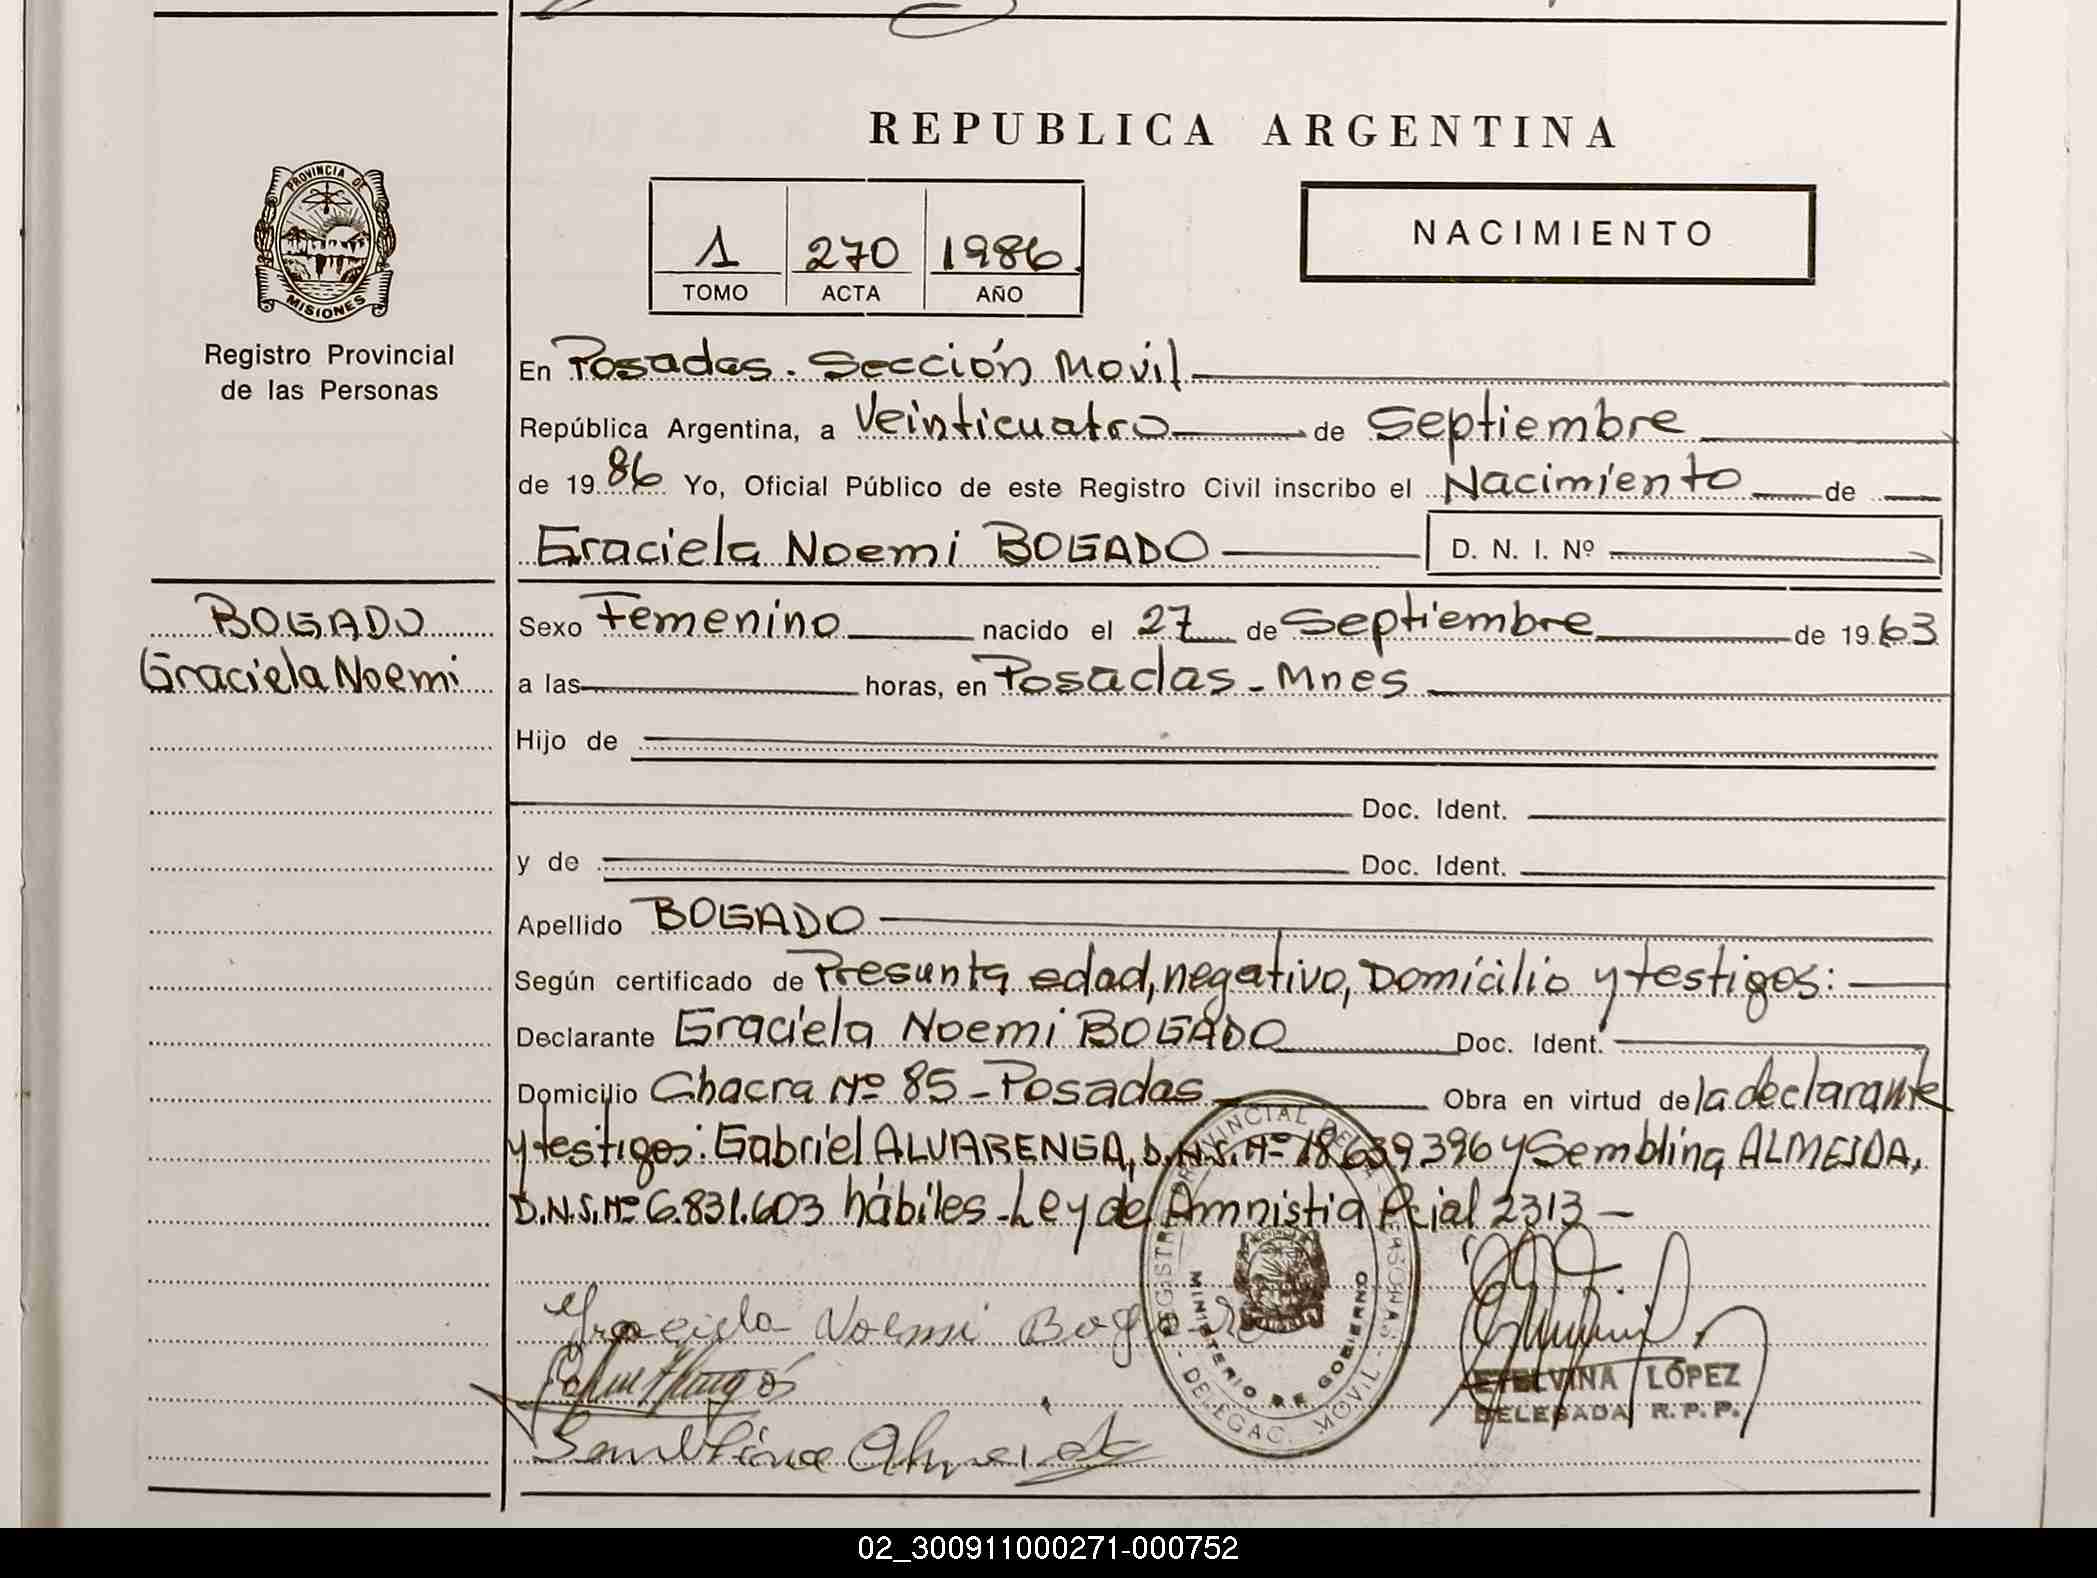 REPUBLICA ARGENTINA
PROVINCIA DE
MISIONES
Registro Provincial
de las Personas
1 270 1986
TOMO ACTA AÑO
NACIMIENTO
En Posadas. Sección Movil
República Argentina, a Veinticuatro de Septiembre
de 1986 Yo, Oficial Público de este Registro Civil inscribo el Nacimiento de
Graciela Noemi BOGADO D. N. I. Nº
BOGADO
Graciela Noemi
Sexo Femenino nacido el 27 de Septiembre de 1963
a las horas, en Posadas - Mnes
Hijo de
Doc. Ident.
y de Doc. Ident.
Apellido BOGADO
Según certificado de Presunta edad, negativo, Domicilio y testigos:
Declarante Graciela Noemi BOGADO Doc. Ident.
Domicilio Chacra Nº 85 - Posadas Obra en virtud de la declarante
y testigos: Gabriel ALVARENGA, D.N.I. Nº 18.639396 y Semblina ALMEIDA,
D.N.I. Nº 6.831.603 hábiles - Ley de Amnistia Pcial 2313 -
Graciela Noemi Bogado
Semblina Almeida
REGISTRO PROVINCIAL DE LAS PERSONAS
MINISTERIO DE GOBIERNO
- DELEGAC. MOVIL -
ETELVINA LÓPEZ
DELEGADA R. P. P.
02_300911000271-000752